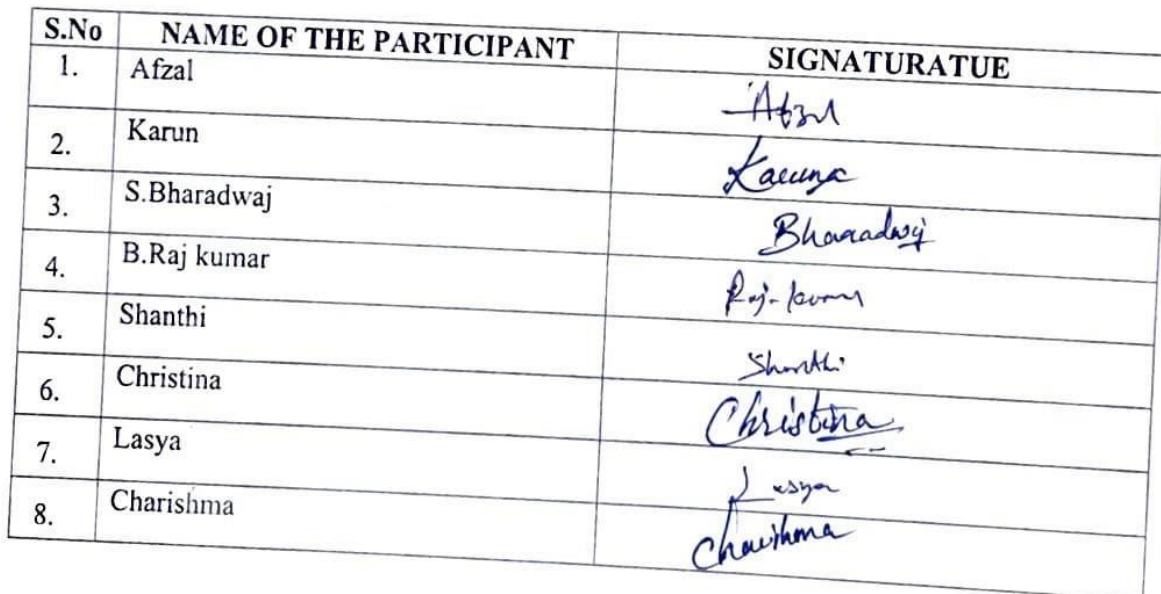 S.No NAME OF THE PARTICIPANT SIGNATURATUE
1. Afzal Afzal
2. Karun Karuna
3. S.Bharadwaj Bharadwaj
4. B.Raj kumar Raj-kumar
5. Shanthi Shanthi
6. Christina Christina
7. Lasya Lasya
8. Charishma Charishma